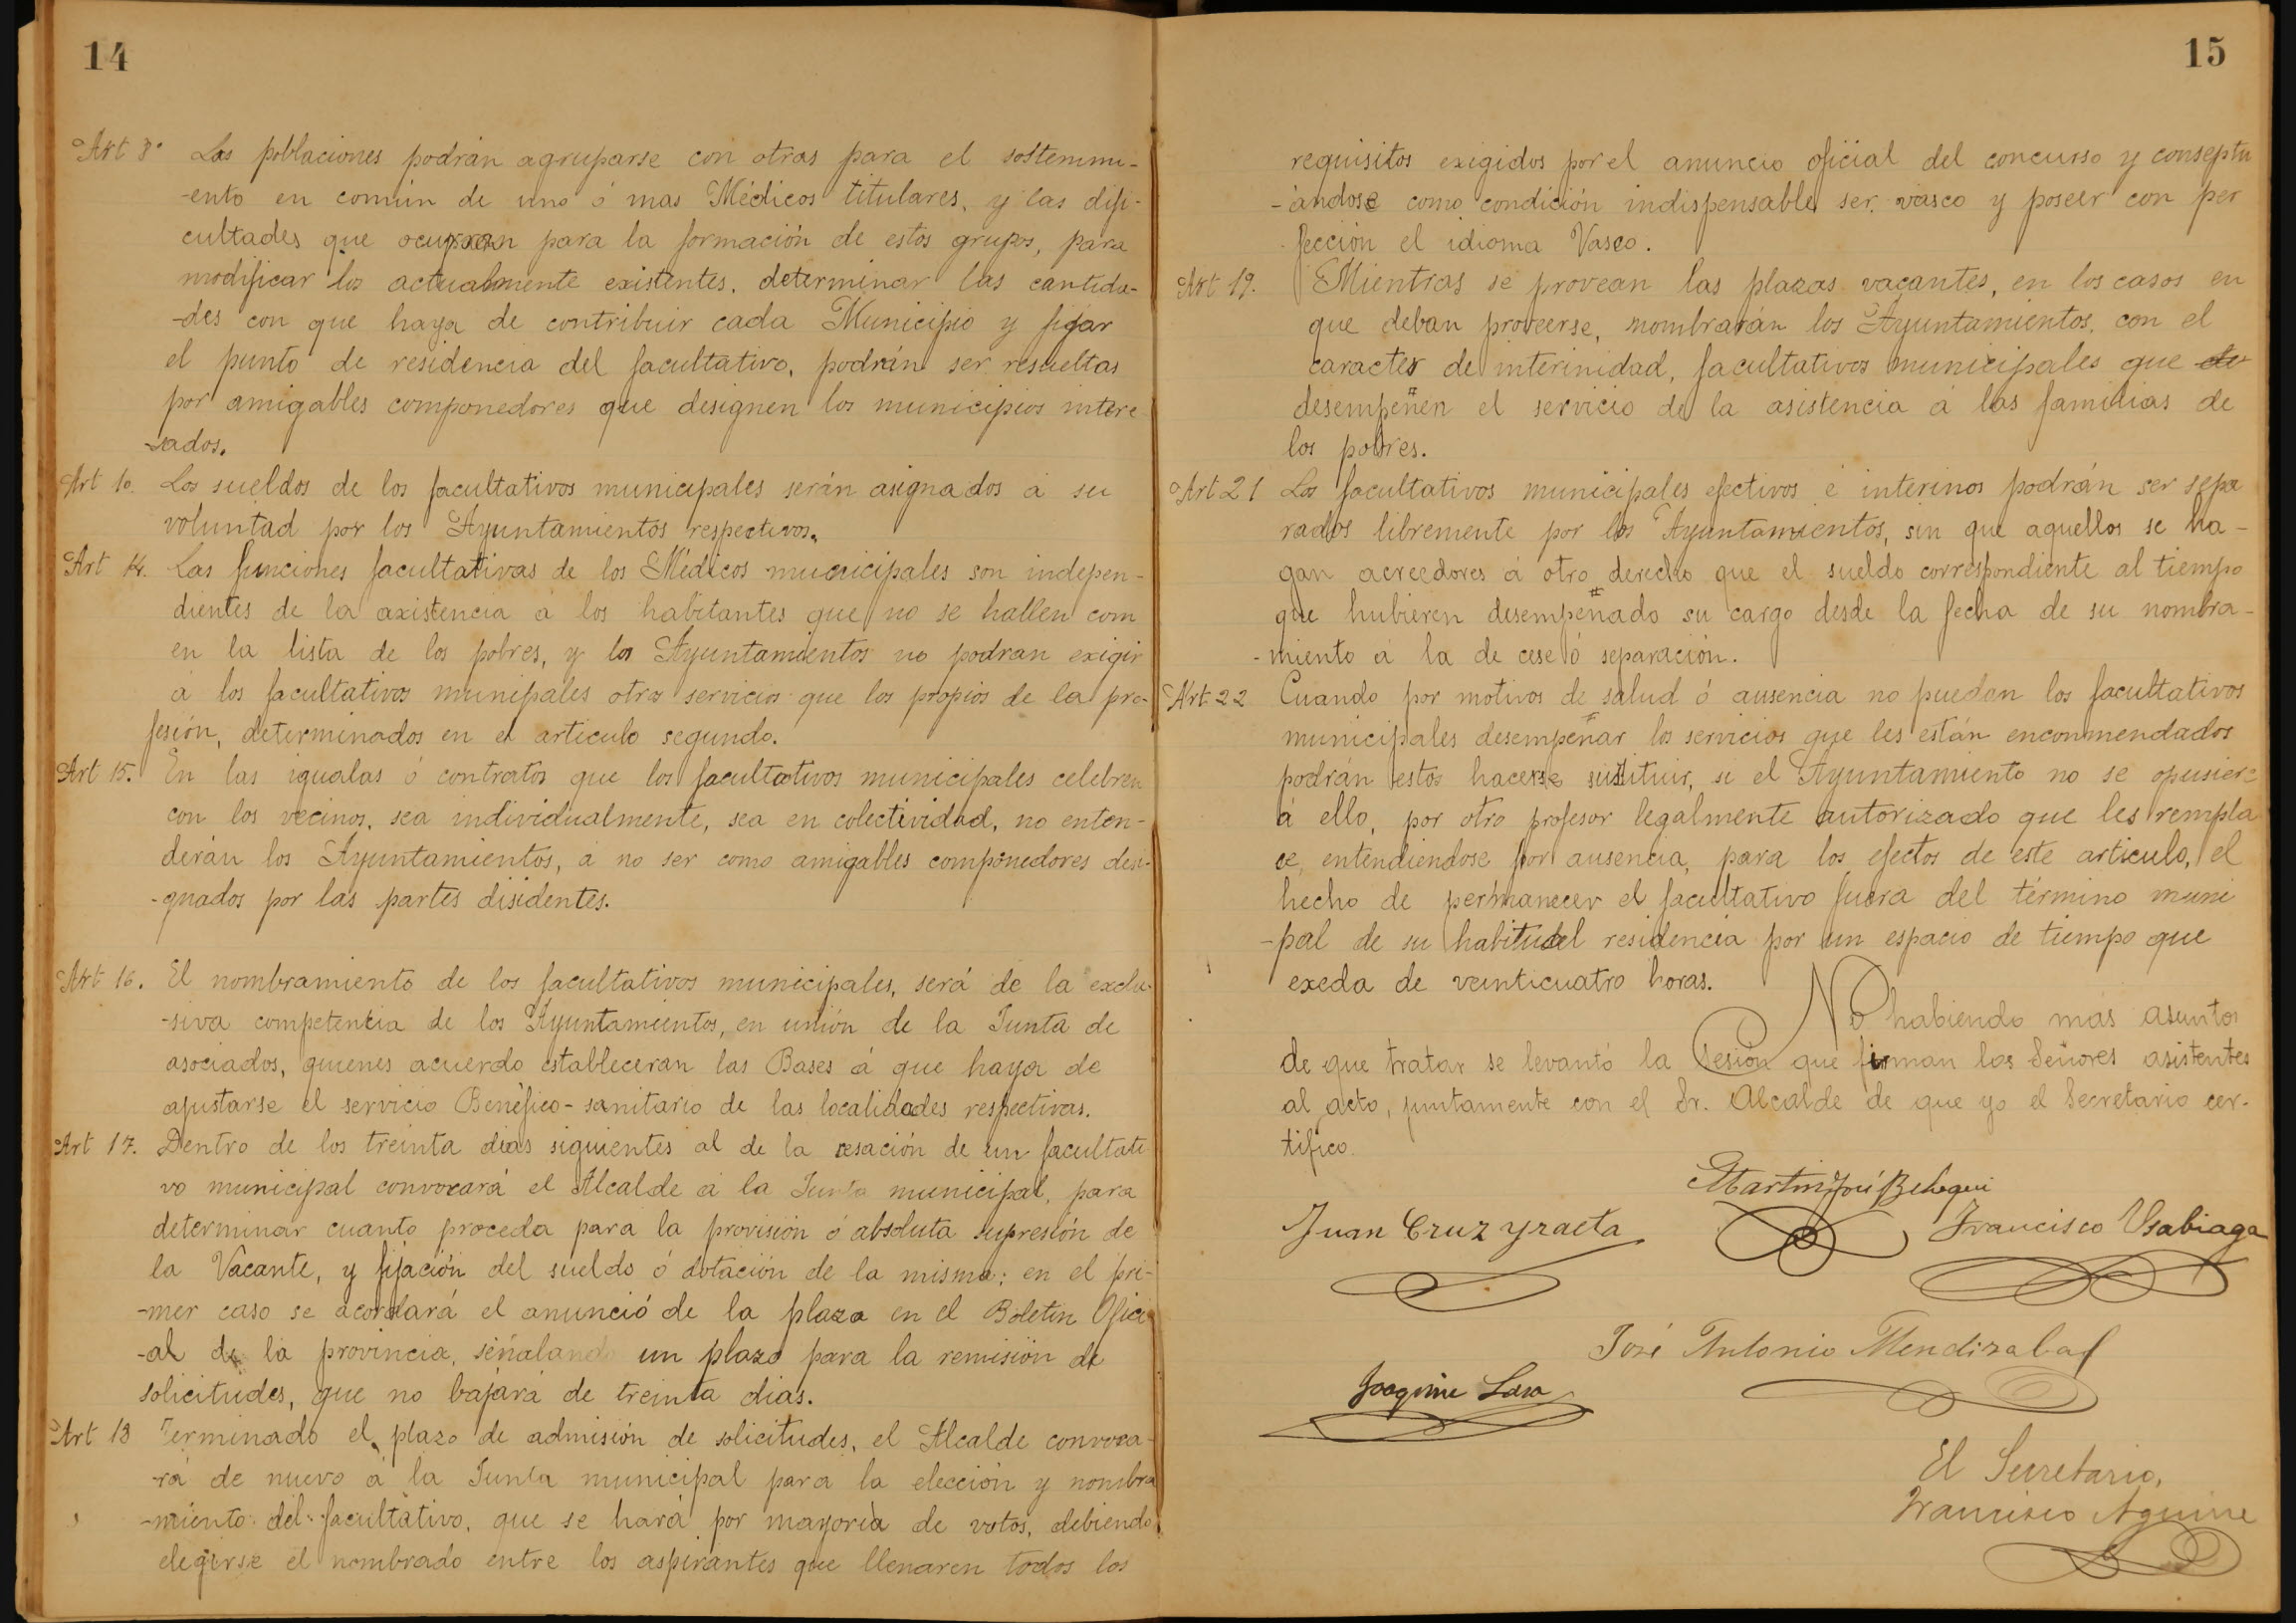 14
Art 8º Las poblaciones podrán agruparse con otras para el sostenimi-
-ento en común de uno ó mas Médicos titulares, y las difi-
cultades que ocurran para la formación de estos grupos, para
modificar los actualmente existentes, determinar las cantida-
-des con que haya de contribuir cada Municipio y fijar
el punto de residencia del facultativo, podrán ser resueltas
por amigables componedores que designen los municipios intere
-sados.
Art 10. Los sueldos de los facultativos municipales serán asignados á su
voluntad por los Ayuntamientos respectivos.
Art 14. Las funciones facultativas de los Médicos municipales son indepen-
dientes de la axistencia a los habitantes que no se hallen com
en la lista de los pobres, y los Ayuntamientos no podran exigir
á los facultativos munipales otros servicios que los propios de la pro-
fesión, determinados en el articulo segundo.
Art 15. En las igualas ó contratos que los facultativos municipales celebren
con los vecinos, sea individualmente, sea en colectividad, no enten-
derán los Ayuntamientos, á no ser como amigables componedores desi-
-gnados por las partes disidentes.
Art 16. El nombramiento de los facultativos municipales, será de la exclu-
-siva competencia de los Ayuntamientos, en unión de la Junta de
asociados, quienes acuerdo estableceran las Bases á que haya de
ajustarse el servicio Benéfico-sanitario de las localidades respectivas.
Art 17. Dentro de los treinta dias siguientes al de la cesación de un facultati
vo municipal convocará el Alcalde á la Junta municipal, para
determinar cuanto proceda para la provisión ó absoluta supresión de
la Vacante, y fijación del sueldo ó dotación de la misma; en el pri-
-mer caso se acordará el anunció de la plaza en el Boletin Ofici
-al de la provincia, señalando un plazo para la remisión de
solicitudes, que no bajará de treinta dias.
Art 18 Terminado el plazo de admisión de solicitudes, el Alcalde convoca-
-rá de nuevo á la Junta municipal para la elección y nombra
-miento del facultativo, que se hará por mayoria de votos, debiendo
elegirse el nombrado entre los aspirantes que llenaren todos los
15
requisitos exigidos por el anuncio oficial del concurso y conseptu
-ándose como condición indispensable ser vasco y poseer con per
fección el idioma Vasco.
Art 19. Mientras se provean las plazas vacantes, en los casos en
que deban proveerse, nombrarán los Ayuntamientos, con el
caracter de interinidad, facultativos municipales que de
desempeñen el servicio de la asistencia á las familias de
los pobres.
Art 21 Los facultativos municipales efectivos é interinos podrán ser sepa
rados libremente por los Ayuntamientos, sin que aquellos se ha-
gan acreedores á otro derecho que el sueldo correspondiente al tiempo
que hubieren desempeñado su cargo desde la fecha de su nombra-
-miento á la de cese ó separación.
Art 22 Cuando por motivos de salud ó ausencia no puedan los facultativos
municipales desempeñar los servicios que les están enconmendados
podrán estos hacerse sustituir, si el Ayuntamiento no se opusiere
á ello, por otro profesor legalmente autorizado que les rempla
ce, entendiendose por ausencia, para los efectos de este articulo, el
hecho de permanecer el facultativo fuera del término muni
-pal de su habitual residencia por un espacio de tiempo que
exeda de veinticuatro horas.
No habiendo mas asuntos
de que tratar se levantó la Sesión que firman los Señores asistentes
al acto, juntamente con el Sr. Alcalde de que yo el Secretario cer-
tifico.
Martin José Beloqui
Juan Cruz Yraeta
Francisco Usabiaga
José Antonio Mendizabal
Joaquin Lasa
El Secretario,
Francisco Aguirre